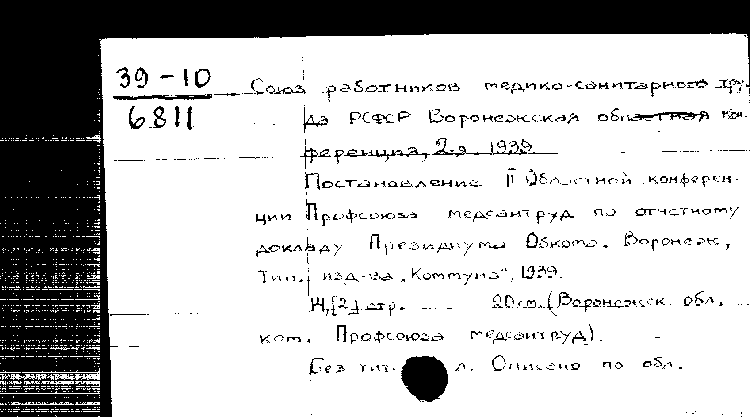 39-10
6811
Союз работников медико-санитарного тру-
да РСФСР Воронежская областная кон-
ференция, 2-я. 1939
Постановление II Областной конферен-
ции Профсоюза медсантруд по отчетному
докладу Президиума Обкома. Воронеж,
Тип. изд-ва „Коммуна", 1939.
[2] стр. 20 см. (Воронежск. обл.
ком. Профсоюза медсантруд).
Без тит. л. Описано по обл.